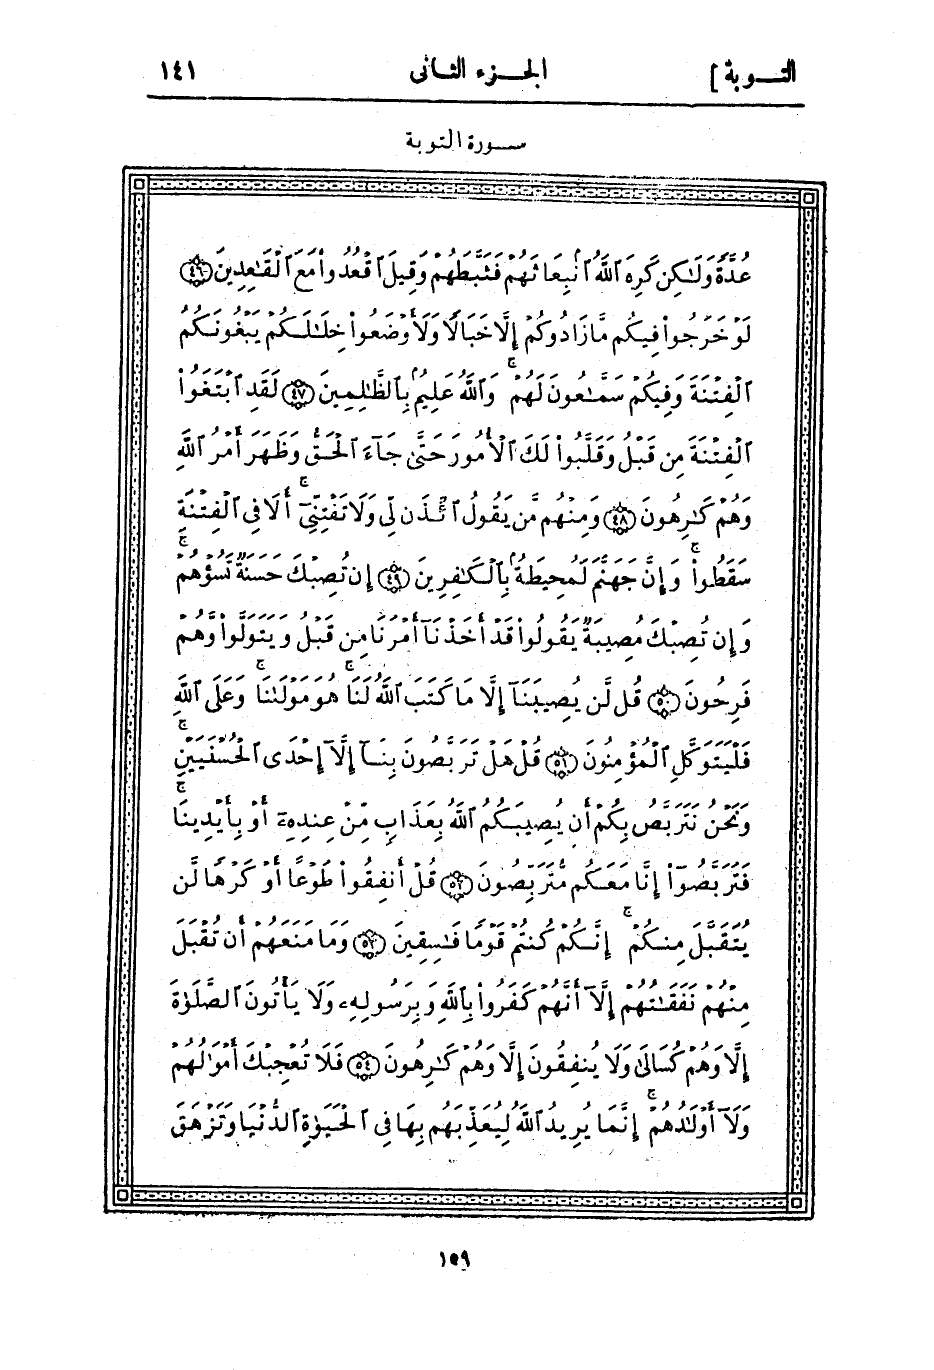 التوبة ] الجزء الثانى ١٤١
سورة التوبة
عُدَّةً وَلَٰكِن كَرِهَ ٱللَّهُ ٱنۢبِعَاثَهُمْ فَثَبَّطَهُمْ وَقِيلَ ٱقْعُدُوا۟ مَعَ ٱلْقَٰعِدِينَ ٤٦
لَوْ خَرَجُوا۟ فِيكُم مَّا زَادُوكُمْ إِلَّا خَبَالًا وَلَأَوْضَعُوا۟ خِلَٰلَكُمْ يَبْغُونَكُمُ
ٱلْفِتْنَةَ وَفِيكُمْ سَمَّٰعُونَ لَهُمْ ۚ وَٱللَّهُ عَلِيمٌۢ بِٱلظَّٰلِمِينَ ٤٧ لَقَدِ ٱبْتَغَوُا۟
ٱلْفِتْنَةَ مِن قَبْلُ وَقَلَّبُوا۟ لَكَ ٱلْأُمُورَ حَتَّىٰ جَآءَ ٱلْحَقُّ وَظَهَرَ أَمْرُ ٱللَّهِ
وَهُمْ كَٰرِهُونَ ٤٨ وَمِنْهُم مَّن يَقُولُ ٱئْذَن لِّى وَلَا تَفْتِنِّىٓ ۚ أَلَا فِى ٱلْفِتْنَةِ
سَقَطُوا۟ ۚ وَإِنَّ جَهَنَّمَ لَمُحِيطَةٌۢ بِٱلْكَٰفِرِينَ ٤٩ إِن تُصِبْكَ حَسَنَةٌ تَسُؤْهُمْ ۚ
وَإِن تُصِبْكَ مُصِيبَةٌ يَقُولُوا۟ قَدْ أَخَذْنَآ أَمْرَنَا مِن قَبْلُ وَيَتَوَلَّوا۟ وَّهُمْ
فَرِحُونَ ٥٠ قُل لَّن يُصِيبَنَآ إِلَّا مَا كَتَبَ ٱللَّهُ لَنَا ۚ هُوَ مَوْلَىٰنَا ۚ وَعَلَى ٱللَّهِ
فَلْيَتَوَكَّلِ ٱلْمُؤْمِنُونَ ٥١ قُلْ هَلْ تَرَبَّصُونَ بِنَآ إِلَّآ إِحْدَى ٱلْحُسْنَيَيْنِ ۚ
وَنَحْنُ نَتَرَبَّصُ بِكُمْ أَن يُصِيبَكُمُ ٱللَّهُ بِعَذَابٍ مِّنْ عِندِهِۦٓ أَوْ بِأَيْدِينَا ۚ
فَتَرَبَّصُوٓا۟ إِنَّا مَعَكُم مُّتَرَبِّصُونَ ٥٢ قُلْ أَنفِقُوا۟ طَوْعًا أَوْ كَرْهًا لَّن
يُتَقَبَّلَ مِنكُمْ ۚ إِنَّكُمْ كُنتُمْ قَوْمًا فَٰسِقِينَ ٥٣ وَمَا مَنَعَهُمْ أَن تُقْبَلَ
مِنْهُمْ نَفَقَٰتُهُمْ إِلَّآ أَنَّهُمْ كَفَرُوا۟ بِٱللَّهِ وَبِرَسُولِهِۦ وَلَا يَأْتُونَ ٱلصَّلَوٰةَ
إِلَّا وَهُمْ كُسَالَىٰ وَلَا يُنفِقُونَ إِلَّا وَهُمْ كَٰرِهُونَ ٥٤ فَلَا تُعْجِبْكَ أَمْوَٰلُهُمْ
وَلَآ أَوْلَٰدُهُمْ ۚ إِنَّمَا يُرِيدُ ٱللَّهُ لِيُعَذِّبَهُم بِهَا فِى ٱلْحَيَوٰةِ ٱلدُّنْيَا وَتَزْهَقَ
١٥٩